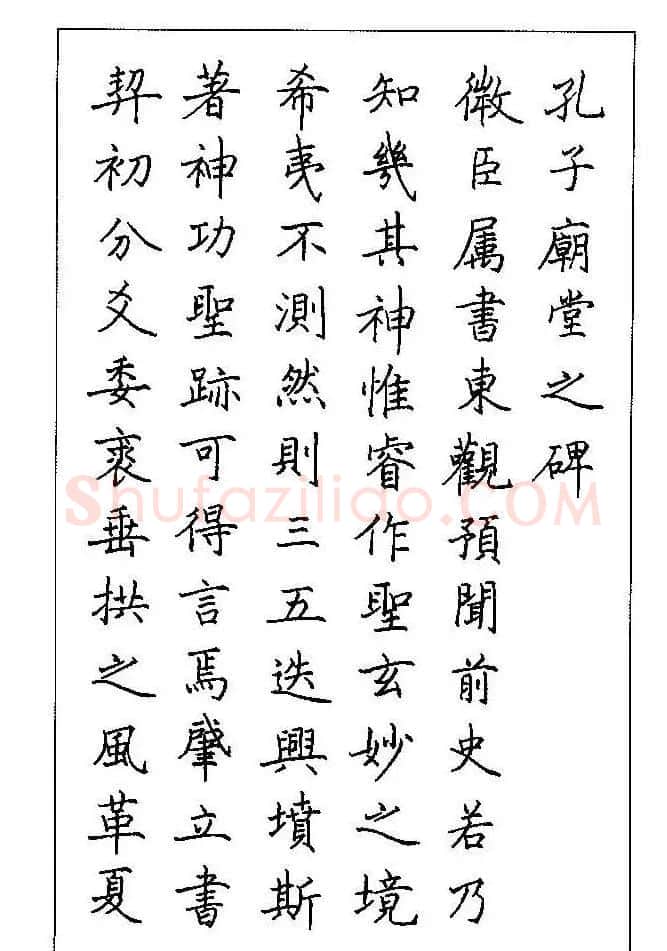 孔子廟堂之碑
微臣属書東觀預聞前史若乃
知幾其神惟睿作聖玄妙之境
希夷不測然則三五迭興墳斯
著神功聖跡可得言焉肇立書
契初分爻委裘垂拱之風革夏
Shufaziliao.COM